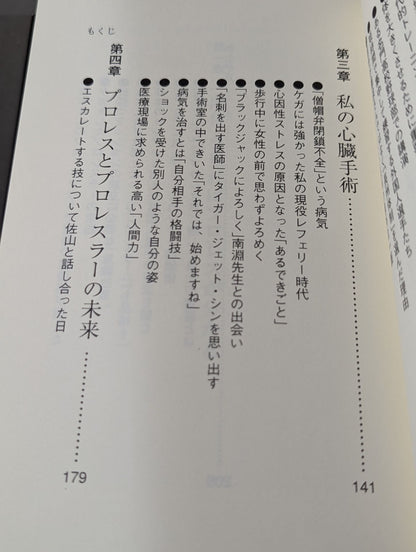 第三章 私の心臓手術…………………141
●「僧帽弁閉鎖不全」という病気
●ケガには強かった私の現役レフェリー時代
●心因性ストレスの原因となった「あるできごと」
●歩行中に女性の前で思わずよろめく
●「ブラックジャックによろしく」南淵先生との出会い
●「名刺を出す医師」にタイガー・ジェット・シンを思い出す
●手術室の中できいた「それでは、始めますね」
●病気を治すとは「自分相手の格闘技」
●ショックを受けた別人のような自分の姿
●医療現場に求められる高い「人間力」
第四章 プロレスとプロレスラーの未来…………179
●エスカレートする技について佐山と話し合った日
もくじ